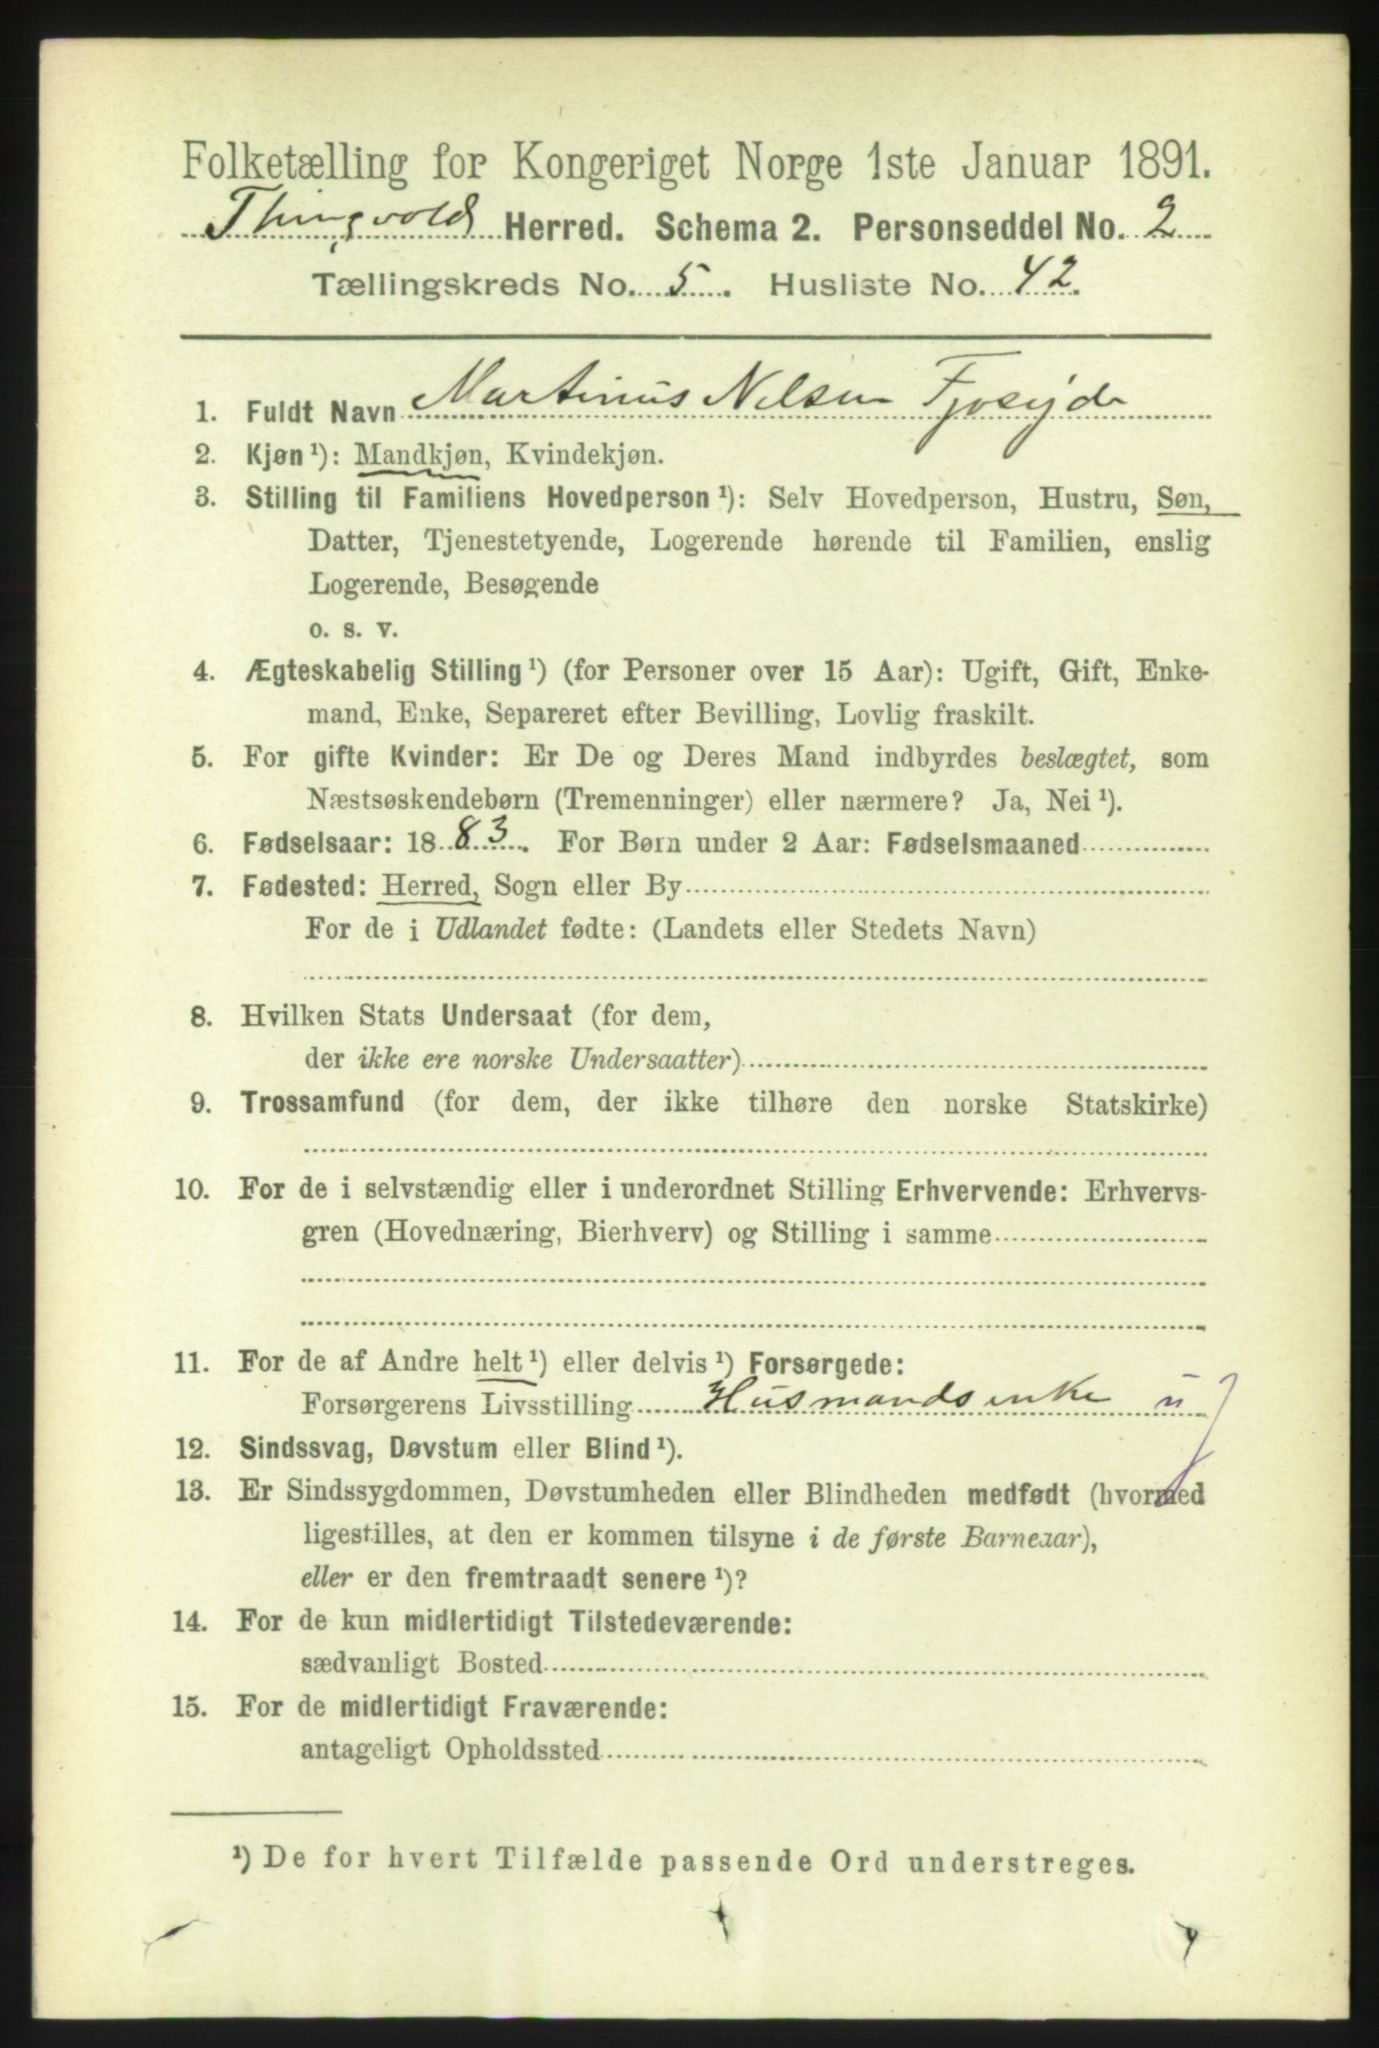 Folketælling for Kongeriget Norge 1ste Januar 1891.
Thingvold Herred. Schema 2. Personseddel No. 2
Tællingskreds No. 5. Husliste No. 42.
1. Fuldt Navn Martinus Nilsen
2. Kjøn ¹): Mandkjøn, Kvindekjøn.
3. Stilling til Familiens Hovedperson ¹): Selv Hovedperson, Hustru, Søn,
Datter, Tjenestetyende, Logerende hørende til Familien, enslig
Logerende, Besøgende
o. s. v.
4. Ægteskabelig Stilling ¹) (for Personer over 15 Aar): Ugift, Gift, Enke-
mand, Enke, Separeret efter Bevilling, Lovlig fraskilt.
5. For gifte Kvinder: Er De og Deres Mand indbyrdes beslægtet, som
Næstsøskendebørn (Tremenninger) eller nærmere? Ja, Nei ¹).
6. Fødselsaar: 1883. For Børn under 2 Aar: Fødselsmaaned
7. Fødested: Herred, Sogn eller By
For de i Udlandet fødte: (Landets eller Stedets Navn)
8. Hvilken Stats Undersaat (for dem,
der ikke ere norske Undersaatter)
9. Trossamfund (for dem, der ikke tilhøre den norske Statskirke)
10. For de i selvstændig eller i underordnet Stilling Erhvervende: Erhvervs-
gren (Hovednæring, Bierhverv) og Stilling i samme
11. For de af Andre helt ¹) eller delvis ¹) Forsørgede:
Forsørgerens Livsstilling Husmandsenke
12. Sindssvag, Døvstum eller Blind ¹).
13. Er Sindssygdommen, Døvstumheden eller Blindheden medfødt (hvormed
ligestilles, at den er kommen tilsyne i de første Barneaar),
eller er den fremtraadt senere ¹)?
14. For de kun midlertidigt Tilstedeværende:
sædvanligt Bosted
15. For de midlertidigt Fraværende:
antageligt Opholdssted
¹) De for hvert Tilfælde passende Ord understreges.